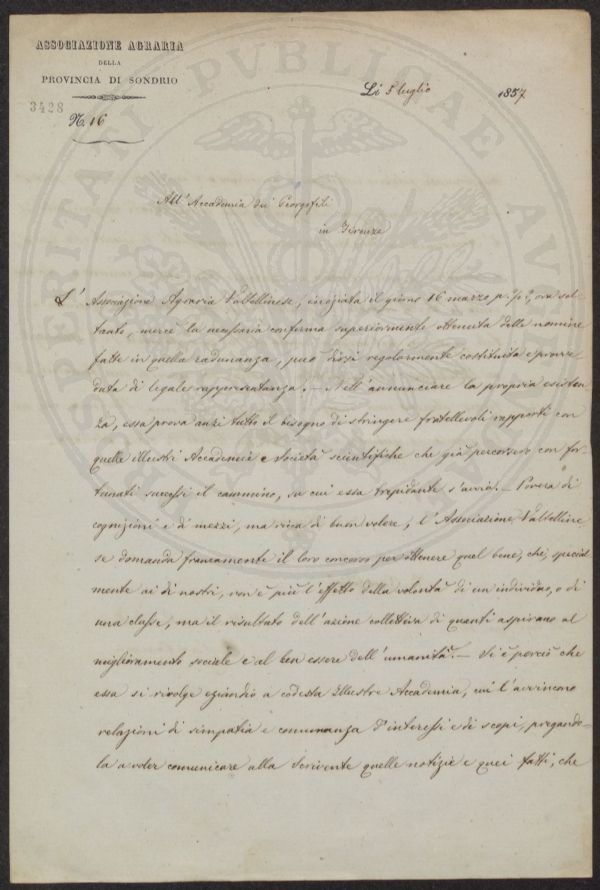 ASSOCIAZIONE AGRARIA
DELLA
PROVINCIA DI SONDRIO
3428
N. 16
Li 5 luglio 1857
All' Accademia dei Georgofili
in Firenze
L' Associazione Agraria Valtellinese, iniziata il giorno 16 marzo p.° p.°, ora sol-
tanto, mercè la necessaria conferma superiormente ottenuta delle nomine
fatte in quella radunanza, può dirsi regolarmente costituita e provve-
duta di legale rappresentanza. - Nell' annunciare la propria esisten-
za, essa prova anzi tutto il bisogno di stringere fratellevoli rapporti con
quelle illustri Accademie e Società scientifiche che già percorsero con for-
tunati successi il cammino, su cui essa trepidante s'avvia. - Povera di
cognizioni e di mezzi, ma ricca di buon volere, l' Associazione Valtelline
se domanda francamente il loro concorso per ottenere quel bene, che, special
mente ai dì nostri, non è più l' effetto della volontà di un individuo, o di
una classe, ma il risultato dell' azione collettiva di quanti aspirano al
miglioramento sociale e al ben essere dell' umanità. - Si è perciò che
essa si rivolge eziandio a codesta Illustre Accademia, cui l' avvincono
relazioni di simpatia e comunanza d' interessi e di scopi, pregando-
la a voler comunicare alla Scrivente quelle notizie e quei fatti, che
PROSPERITATI PUBLICAE AU